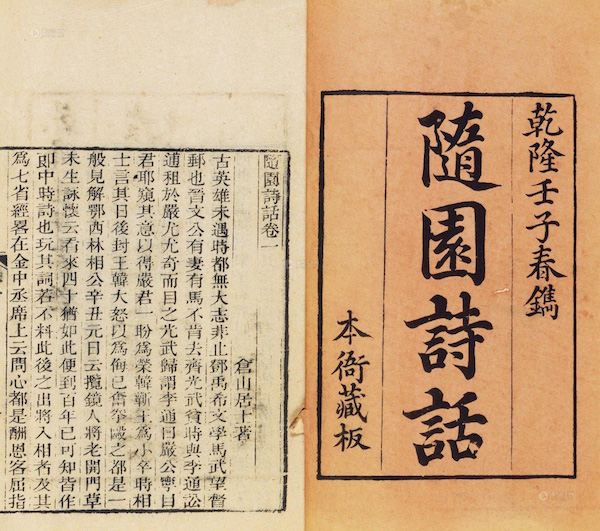 乾隆壬子春鐫
隨園詩話
本衙藏板
隨園詩話卷一
倉山居士著
古英雄未遇時都無大志非止鄧禹希文學馬武望督
郵也晉文公有妻有馬不肯去齊光武貧時與李通訟
逋租於嚴尤尤奇而目之光武歸謂李通曰嚴公寧目
君耶窺其意以得嚴君一盼爲榮韓蘄王爲小卒時相
士言其日後封王韓大怒以爲侮已奮拳毆之都是一
般見解鄂西林相公辛丑元日云攬鏡人將老開門草
未生詠懷云看來四十猶如此便到百年已可知皆作
郎中時詩也玩其詞若不料此後之出將入相者及其
爲七省經畧在金中丞席上云問心都是酬恩客屈指